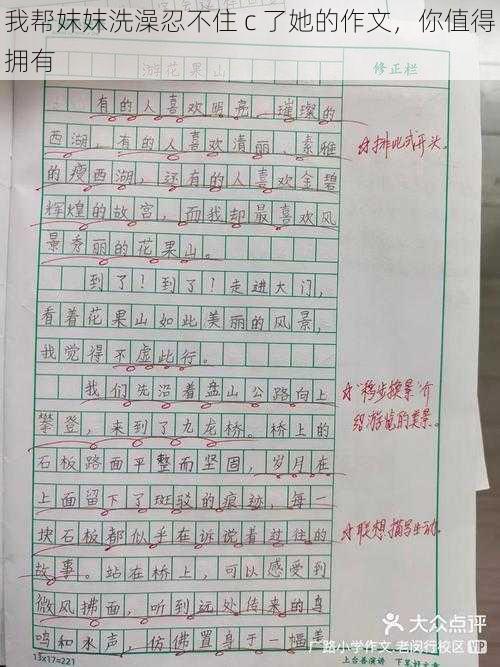 游花果山
修正栏
有的人喜欢明荡、璀璨的
西湖，有的人喜欢清丽、素雅
的瘦西湖，还有的人喜欢金碧
辉煌的故宫，而我却最喜欢风
景秀丽的花果山。
排比式开头。
到了！到了！走进大门，
看着花果山如此美丽的风景，
我觉得不虚此行。
我们先沿着盘山公路向上
攀登，来到了九龙桥。桥上的
石板路面平整而坚固，岁月在
上面留下了斑驳的痕迹，每一
块石板都似乎在诉说着过往的
故事。站在桥上，可以感受到
微风拂面，听到远处传来的鸟
鸣和水声，仿佛置身于一幅美
"移步换景"介
绍游览的美景。
联想描写生动。
13x17=221
大众点评
广路小学作文.老闵行校区 VIP